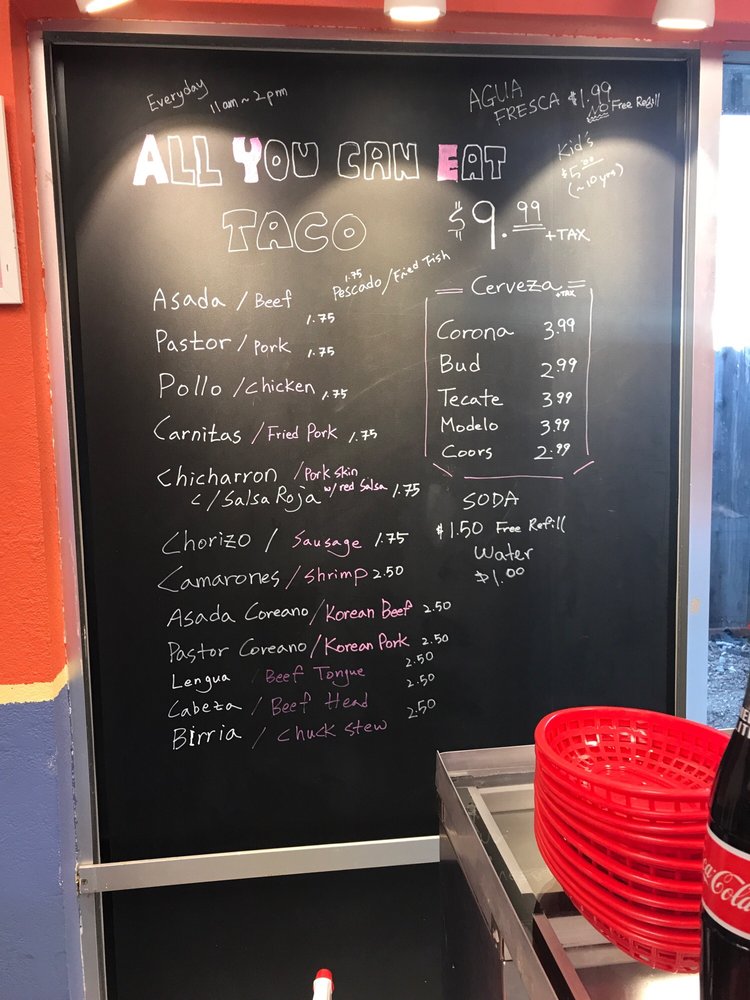 Everyday
11am ~ 2pm
AGUA
FRESCA $1.99
NO Free Refill
ALL YOU CAN EAT
Kid's
$5.00
(~10 yrs)
TACO
$9.99 +TAX
Asada / Beef 1.75
Pescado / Fried Fish 1.75
Pastor / Pork 1.75
Pollo / Chicken 1.75
Carnitas / Fried Pork 1.75
Chicharron / Pork skin
c/ Salsa Roja w/ red Salsa 1.75
Chorizo / Sausage 1.75
Camarones / Shrimp 2.50
Asada Coreano / Korean Beef 2.50
Pastor Coreano / Korean Pork 2.50
Lengua / Beef Tongue 2.50
Cabeza / Beef Head 2.50
Birria / Chuck stew 2.50
= Cerveza =
+TAX
Corona 3.99
Bud 2.99
Tecate 3.99
Modelo 3.99
Coors 2.99
SODA
$1.50 Free Refill
Water
$1.00
Coca-Cola